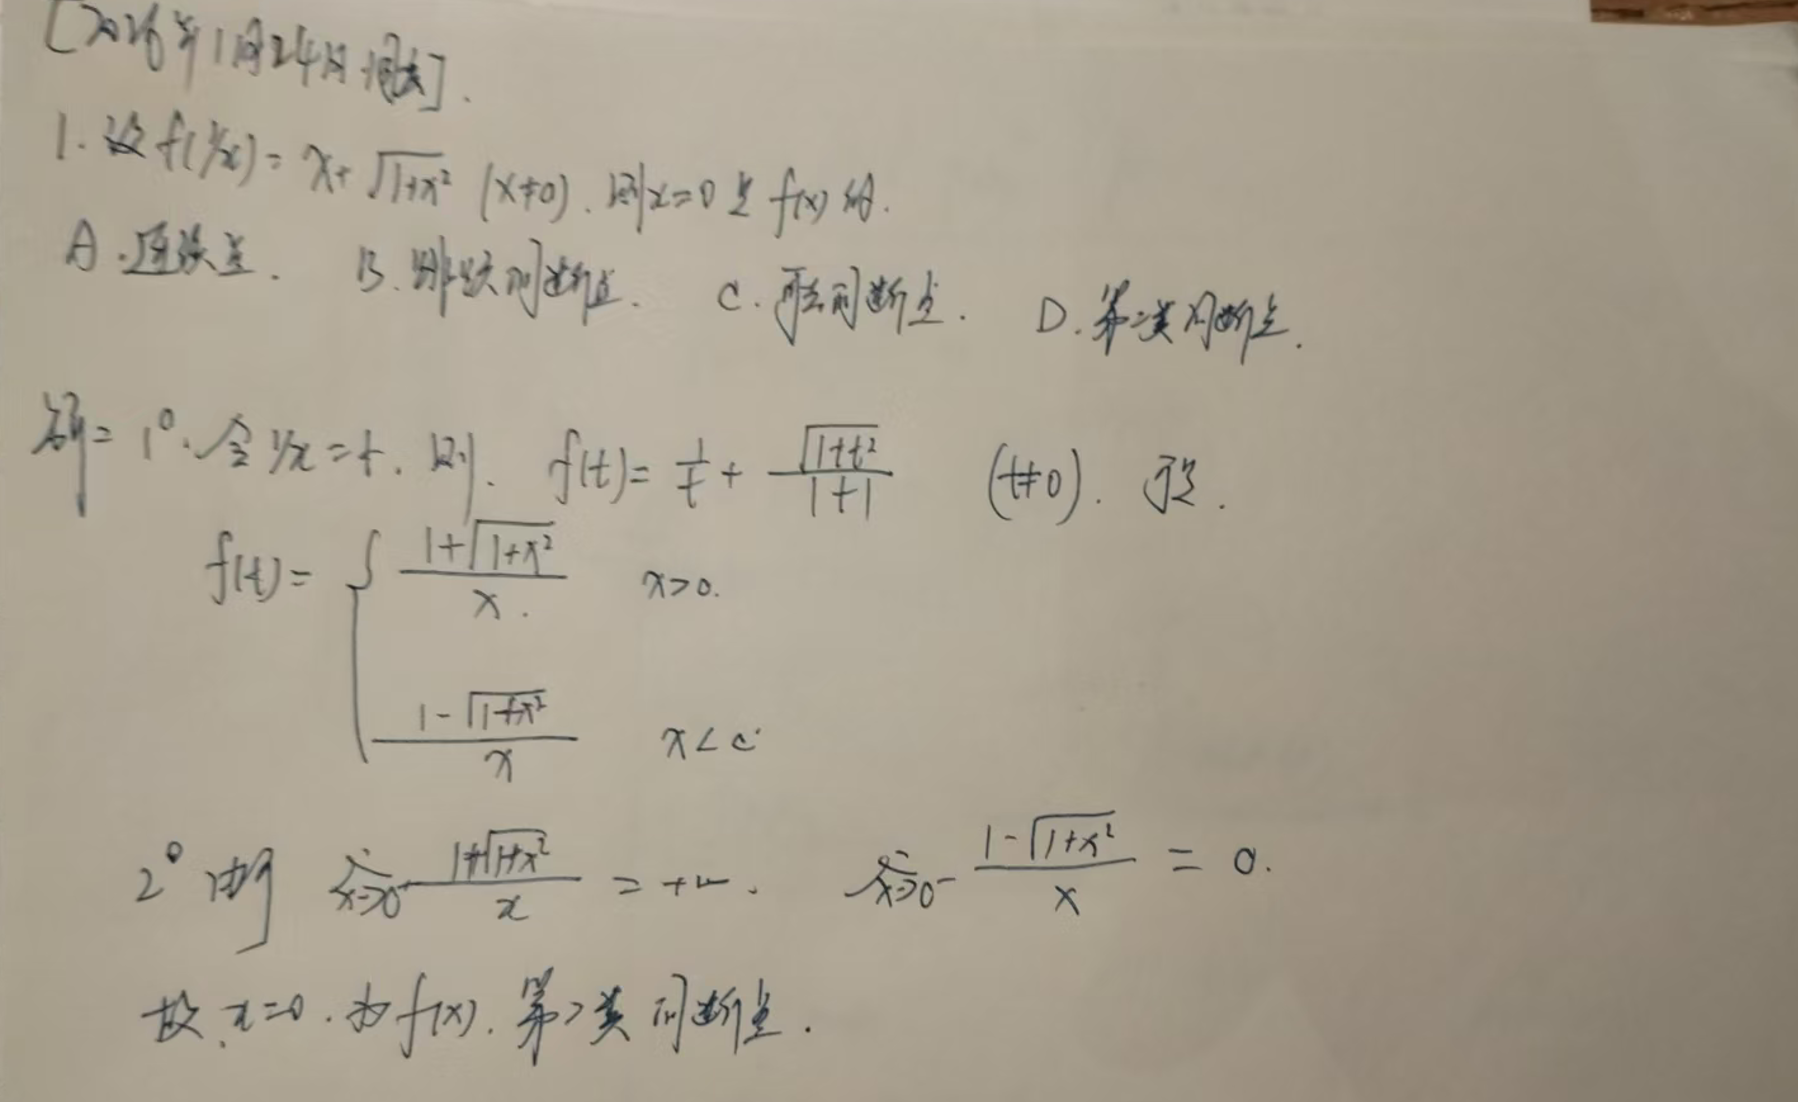 [2026年1月24日 周六].
1. 设 f(1/x) = x + √(1+x²) (x≠0). 则 x=0 是 f(x) 的.
A. 连续点. B. 跳跃间断点. C. 可去间断点. D. 第二类间断点.
解: 1°. 令 1/x = t. 则. f(t) = 1/t + √(1+t²)/|t| (t≠0). 于是.
f(t) = { (1+√(1+x²))/x. x>0.
(1-√(1+x²))/x x<0.
2° 由于 lim x→0⁺ (1+√(1+x²))/x = +∞. lim x→0⁻ (1-√(1+x²))/x = 0.
故 x=0. 为 f(x). 第二类间断点.